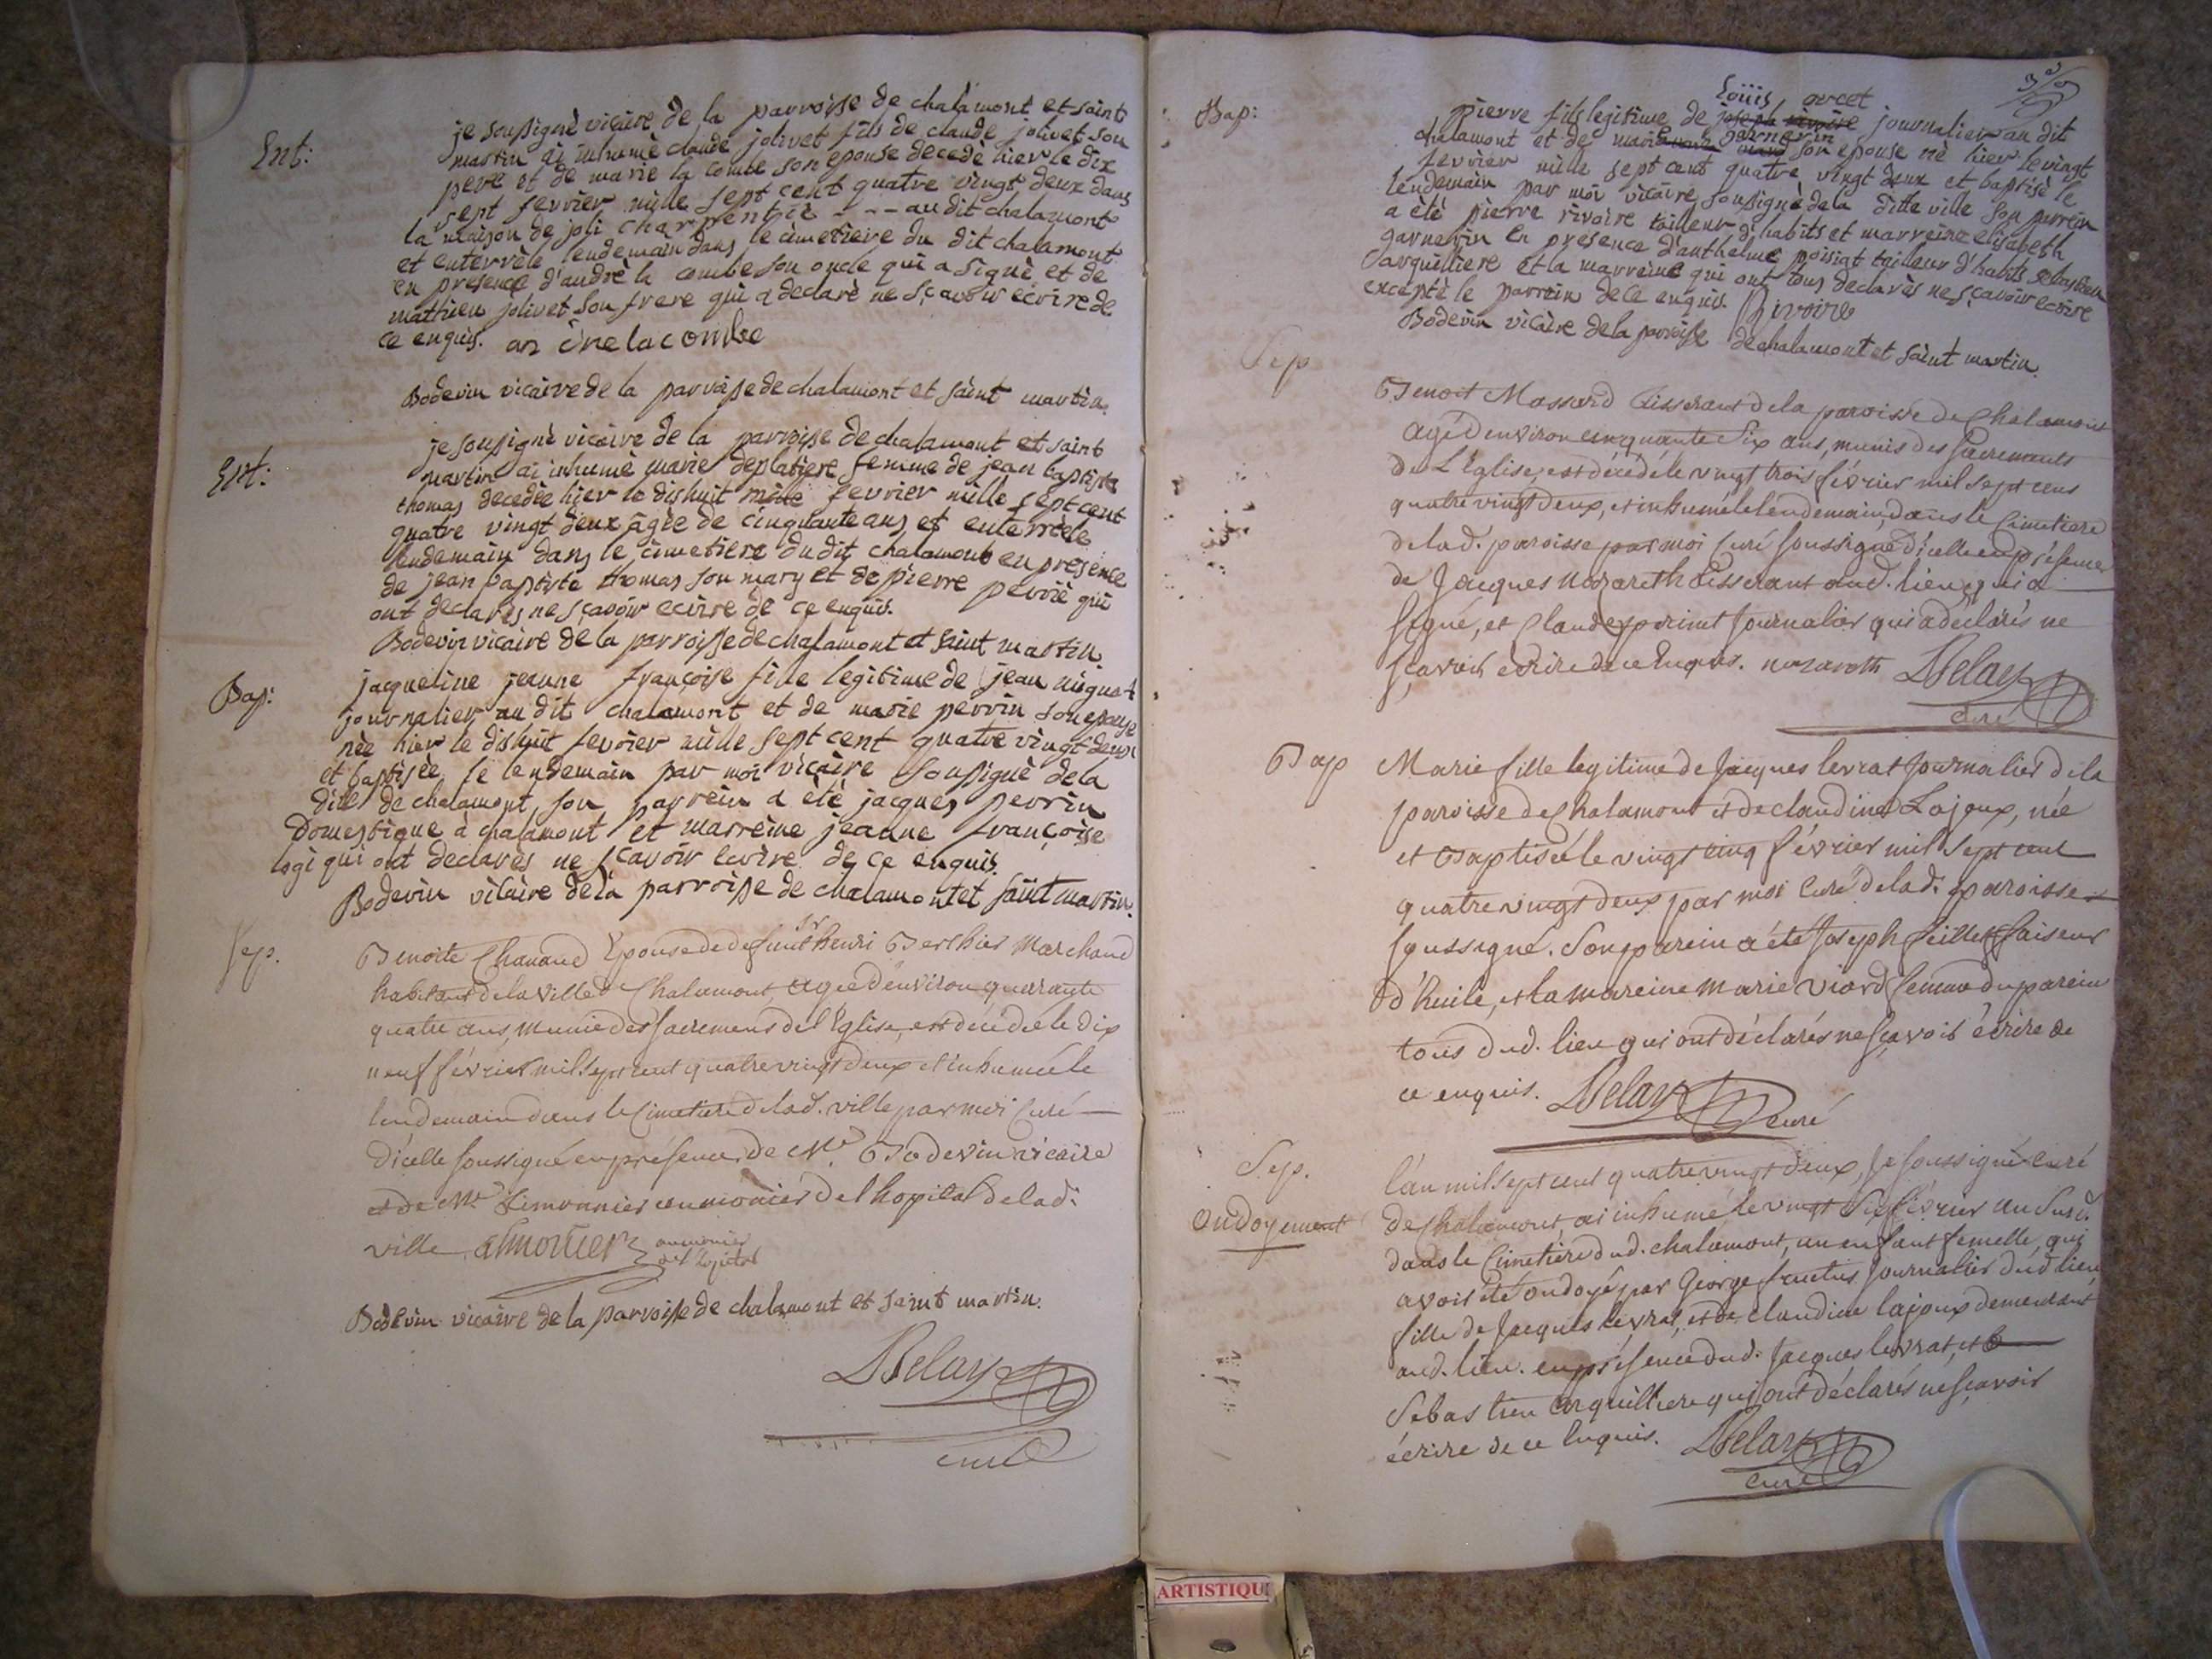 Ent:
je soussignè vicaire de la parroisse de chalamont et saint
martin ai inhumè claude jolivet fils de claude jolivet son
pere et de marie la combe son epouse decedè hier le dix
sept fevrier mille sept cent quatre vingt deux dans
la maison de joli charpentiè - - - au dit chalamont
et enterrèle lendemain dans le cimetiere du dit chalamont
en presence d'andrè la combe son oncle qui a signè et de
mathieu jolivet son frere qui a declarè ne sçavoir ecrire de
ce enquis. an drelacombe
Bodevin vicaire de la parroisse de chalamont et saint martin.
Ent:
je soussignè vicaire de la parroisse de chalamont et saint
martin ai inhumè marie deplatiere femme de jean baptiste
thomas decedèe hier le dishuit fevrier mille sept cent
quatre vingt deux àgèe de cinquante ans et enterrèe le
lendemain dans le cimetiere du dit chalamont en presence
de jean baptiste thomas son mary et de pierre perriè qui
ont declarès ne sçavoir ecrire de ce enquis.
Bodevin vicaire de la parroisse de chalamont et saint martin.
Bap:
jacqueline jeanne françoise fille legitime de jean
journalier au dit chalamont et de marie perrin son epouse
nèe hier le dishuit fevrier mille sept cent quatre vingt deux
et baptisèe le lendemain par moi vicaire soussignè dela
ditte de chalamont, son parrein a ètè jacques perrin
domestique à chalamont et marreine jeanne françoise
logi qui ont declarès ne sçavoir ecrire de ce enquis.
Bodevin vicaire dela parroisse de chalamont et saint martin.
Sep.
Benoite Chanaud Epouse de defunt sr henri Berthier Marchand
habitant de la ville de Chalamont, agée d'environ quarante
quatre ans, munie des sacremens de l'Eglise, est décédée le dix
neuf février mil sept cent quatre vingt deux et inhumée le
lendemain dans le Cimetiere de lad. ville par moi Curé
d'icelle soussigné en présence de Mr. Bodevin vicaire
et de Mr. Limonnier aumonier de l'hopital de lad.
ville aumonier
de l'hopital
Bodevin vicaire de la parroisse de chalamont et saint martin.
Delay
curé
Bap:
Loüis orcet
pierre fils legitime de joseph rivoire journalier au dit
chalamont et de marie garnerin son epouse nè hier le vingt
fevrier mille sept cent quatre vingt deux et baptisè le
lendemain par moi vicaire soussignè dela ditte ville son parrein
a ètè pierre rivoire tailleur d'habits et marreine elisabeth
garnerin en presence d'anthelme poisiat tailleur d'habits sebastien
sarquilliere et la marreine qui ont tous declarès ne sçavoir ecrire
exceptè le parrein de ce enquis. P rivoire
Bodevin vicaire de la parroisse de chalamont et saint martin.
Sep
Benoit Massard tisserant de la paroisse de Chalamont
agé d'environ cinquante six ans, munis des Sacrements
de L'Eglise, est décédé le vingt trois février mil sept cens
quatre vingt deux, et inhumé le lendemain, dans le Cimetiere
de lad. paroisse par moi Curé soussigné d'icelle en présence
de Jacques Nazareth tisserant aud. lieu, qui a
signé, et Claude journalier qui a déclarés ne
sçavoir écrire de ce Enquis. nazareth Delay
curé
Bap
Marie fille legitime de Jacques levrat journalier de la
paroisse de Chalamont et de claudine Lajoux, née
et Baptisée le vingt cinq février mil sept cent
quatre vingt deux par moi Curé de lad. paroisse
soussigné. Son parein a été Joseph feillet faiseur
d'huile, et la mareine marie viard femme du parein
tous dud. lieu qui ont déclarés ne sçavoir écrire de
ce enquis. Delay
curé
Sep.
ondoyement
L'an mil sept cent quatre vingt deux, Je soussigné curé
de Chalamont, ai inhumé le vingt six février an susd.
dans le Cimetiere dud. chalamont, un enfant femelle, qui
avoit été ondoyé par George journalier dud. lieu
fille de Jacques levrat, et de claudine lajoux demeurant
aud. lieu. en présence dud. Jacques levrat, et
Sebastien sarquilliere qui ont déclarés ne sçavoir
écrire de ce Enquis. Delay
curé
ARTISTIQU